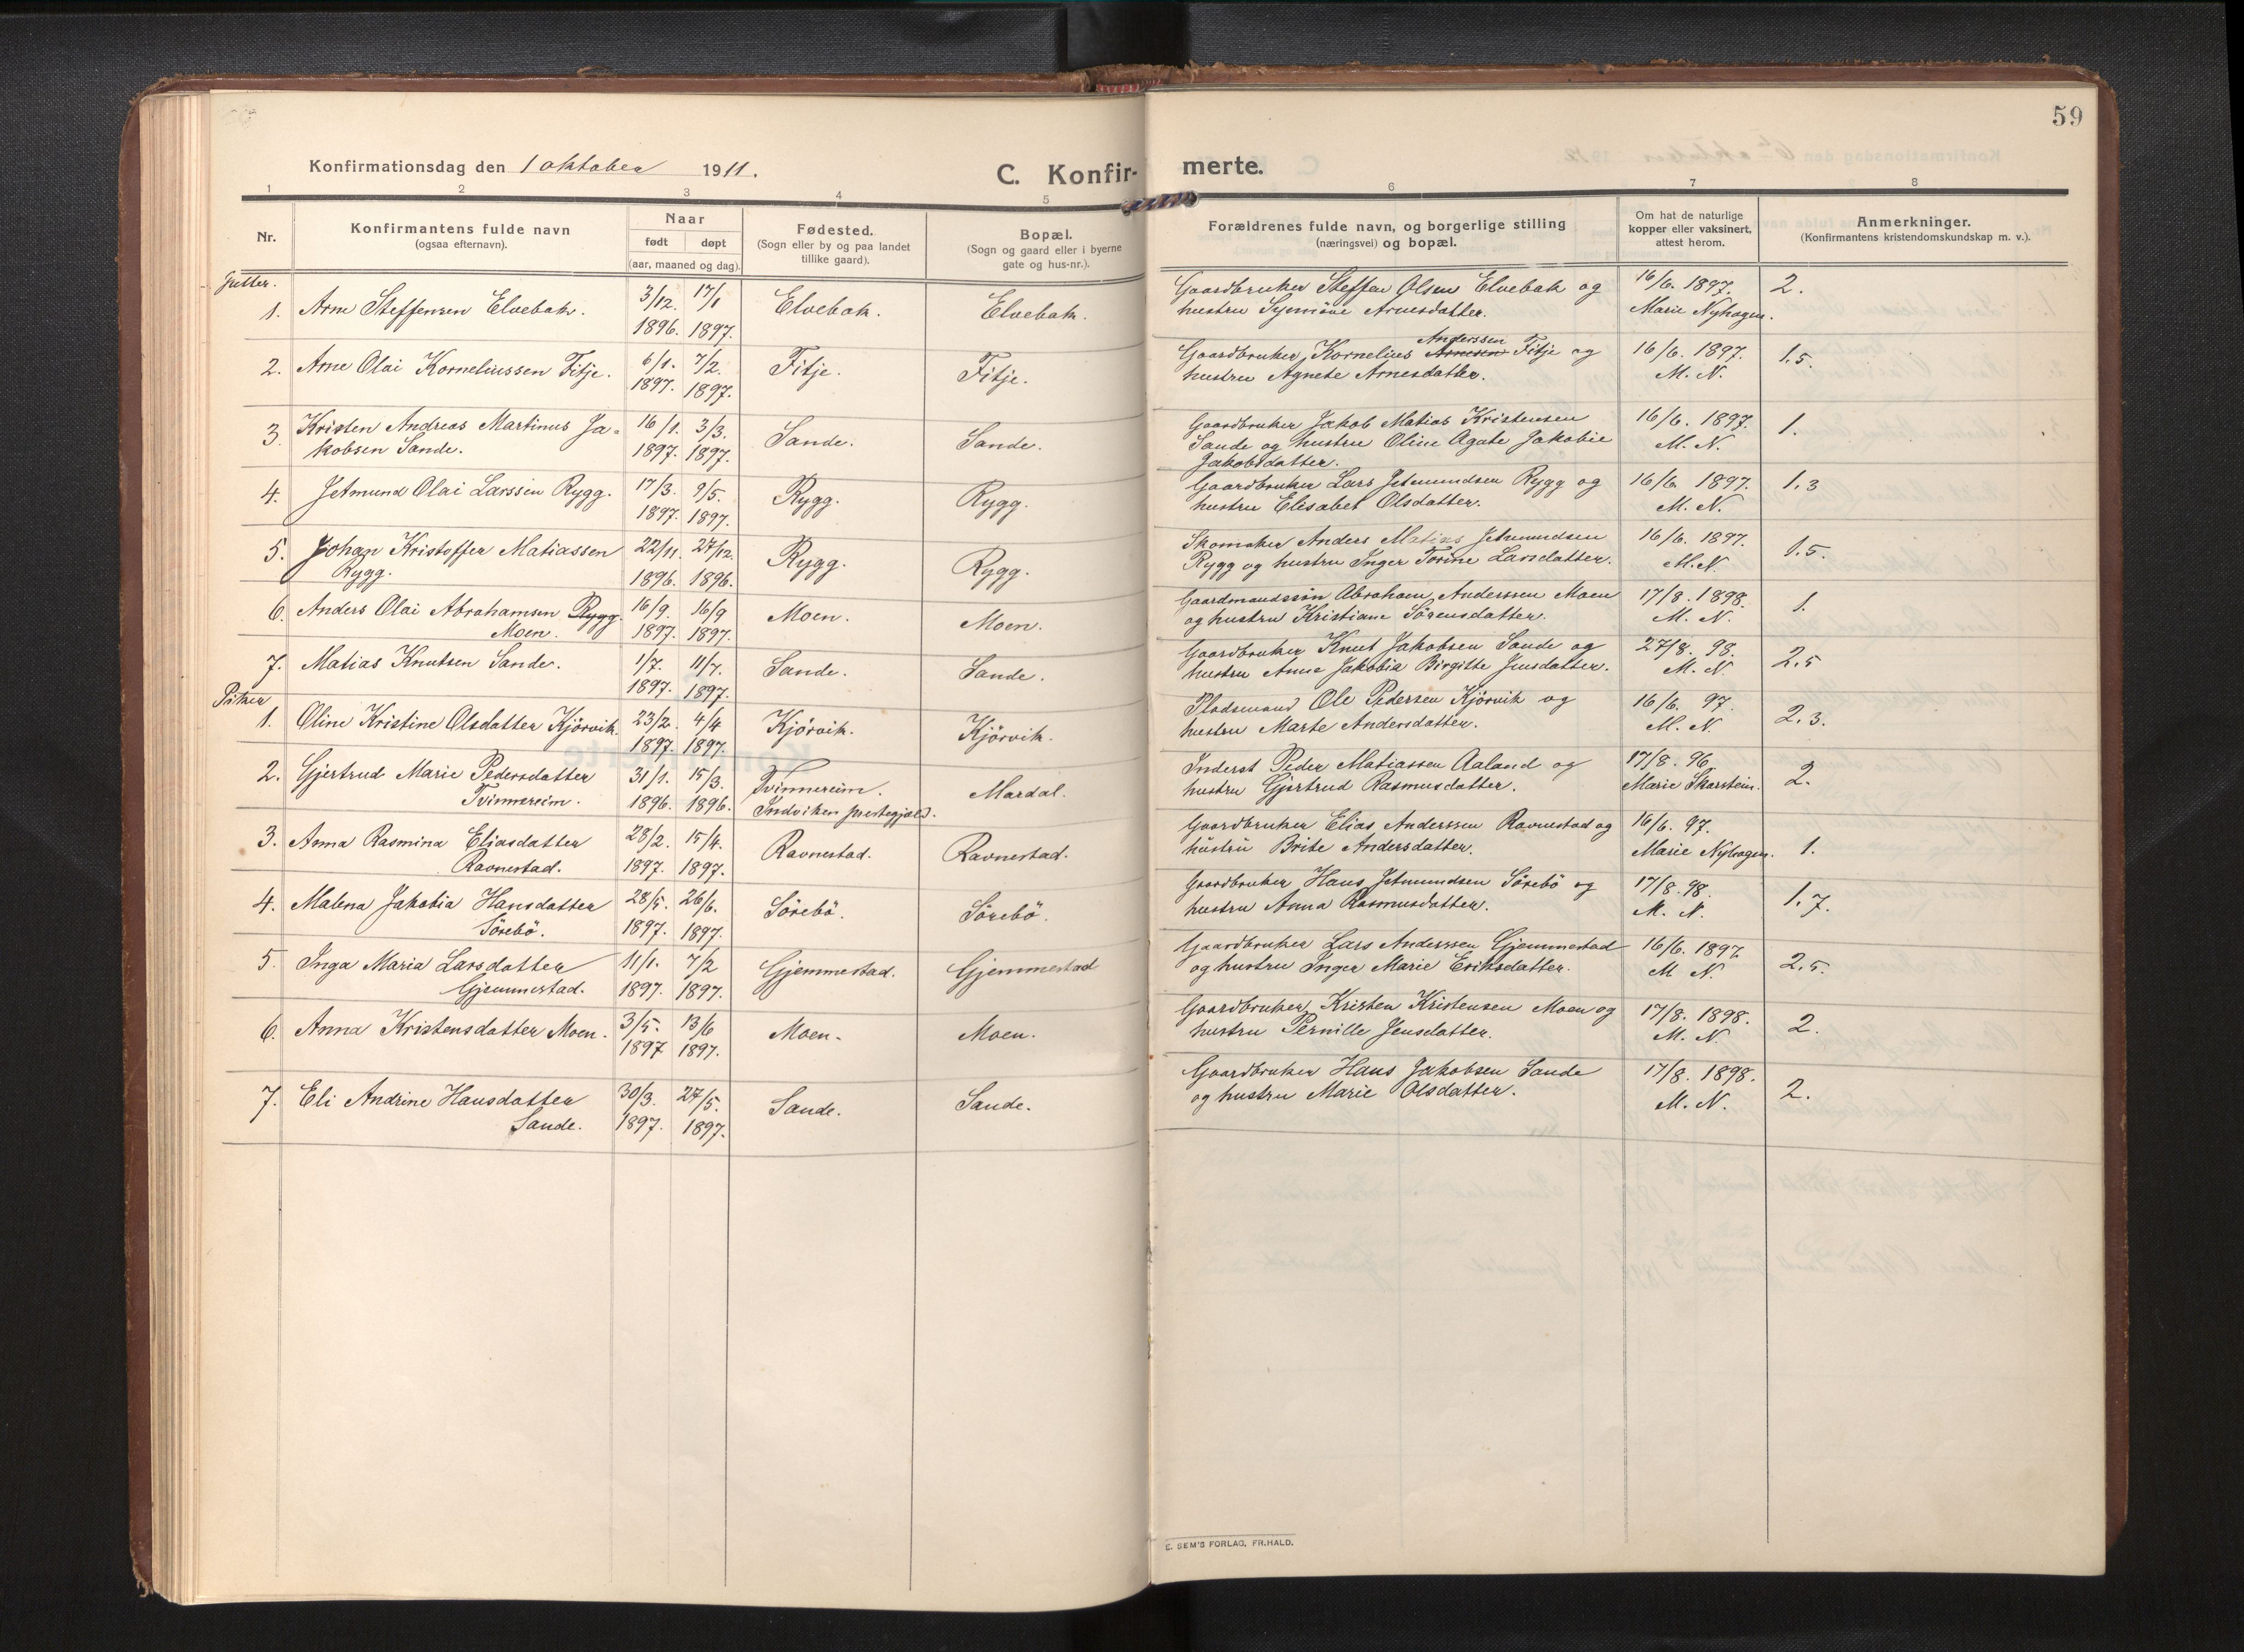 59
Konfirmationsdag den 1 oktober 1911.
C. Konfir-
merte.
1 2 3 4 5 6 7 8
Nr.
Konfirmantens fulde navn
(ogsaa efternavn).
Naar
født døpt
(aar, maaned og dag).
Fødested.
(Sogn eller by og paa landet
tillike gaard).
Bopæl.
(Sogn og gaard eller i byerne
gate og hus-nr.).
Forældrenes fulde navn, og borgerlige stilling
(næringsvei) og bopæl.
Om hat de naturlige
kopper eller vaksinert,
attest herom.
Anmerkninger.
(Konfirmantens kristendomskundskap m. v.).
Gutter.
1. Arne Steffensen Elvebak. 3/12. 17/1 Elvebak. Elvebak. Gaardbruker Steffen Olsen Elvebak og 16/6. 1897. 2.
1896. 1897. hustru Synnöve Arnesdatter. Marie Nyhagen.
Anderssen
2. Arne Olai Korneliussen Fitje. 6/1. 7/2. Fitje. Fitje. Gaardbruker Kornelius Arnesen Fitje og 16/6. 1897. 1.5.
1897. 1897. hustru Agnete Arnesdatter. M. N.
3. Kristen Andreas Martinus Ja- 16/1. 3/3. Sande. Sande. Gaardbruker Jakob Matias Kristensen 16/6. 1897. 1.
kobsen Sande. 1897. 1897. Sande og hustru Oline Agate Jakobie M. N.
Jakobsdatter.
4. Jetmund Olai Larssen Rygg. 17/3. 9/5. Rygg. Rygg. Gaardbruker Lars Jetmundsen Rygg og 16/6 1897. 1.3
1897. 1897. hustru Elisabet Olsdatter. M. N.
5. Johan Kristoffer Matiassen 22/11. 27/12. Rygg. Rygg. Skomaker Anders Matias Jetmundsen 16/6. 1897. 1.5.
Rygg. 1896. 1896. Rygg og hustru Inger Torine Larsdatter. M. N.
6. Anders Olai Abrahamsen Rygg. 16/9. 16/9 Moen. Moen. Gaardmandssön Abraham Anderssen Moen 17/8. 1898. 1.
Moen. 1897. 1897. og hustru Kristiane Sörensdatter. M. N.
7. Matias Knutsen Sande. 1/7. 11/7. Sande. Sande. Gaardbruker Knut Jakobsen Sande og 27/8. 98. 2.5
1897. 1897. hustru Anne Jakobia Birgitte Jensdatter. M. N.
Piker
1. Oline Kristine Olsdatter Kjörvik. 23/2. 4/4 Kjörvik. Kjörvik. Pladsmand Ole Pedersen Kjörvik og 16/6. 97. 2.3.
1897. 1897. hustru Marte Andersdatter. M. N.
2. Gjertrud Marie Pedersdatter 31/1. 15/3. Tvinnereim. Mardal. Inderst Peder Matiassen Aaland og 17/8. 96 2.
Tvinnereim. 1896. 1896. Indviken prestegjæld. hustru Gjertrud Rasmusdatter. Marie Skarstein.
3. Anna Rasmina Eliasdatter 28/2. 15/4. Ravnestad. Ravnestad. Gaardbruker Elias Anderssen Ravnestad og 16/6. 97. 1.
Ravnestad. 1897. 1897. hustru Brite Andersdatter. Marie Nyhagen.
4. Malena Jakobia Hansdatter 28/5. 26/6. Sörebö. Sörebö. Gaardbruker Hans Jetmundsen Sörebö og 17/8. 98. 1.7.
Sörebö. 1897. 1897. hustru Anna Rasmusdatter. M. N.
5. Inga Maria Larsdatter 11/1. 7/2 Gjemmestad. Gjemmestad Gaardbruker Lars Anderssen Gjemmestad 16/6. 1897. 2.5.
Gjemmestad. 1897. 1897. og hustru Inger Marie Eriksdatter. M N.
6. Anna Kristensdatter Moen. 3/5. 13/6 Moen. Moen. Gaardbruker Kristen Kristensen Moen og 17/8. 1898. 2.
1897 1897. hustru Pernille Jensdatter. M. N.
7. Eli Andrine Hansdatter 30/3. 27/5. Sande. Sande. Gaardbruker Hans Jakobsen Sande 17/8. 1898. 2.
Sande. 1897. 1897. og hustru Marie Olsdatter. M. N.
E. SEM'S FORLAG, FR.HALD.